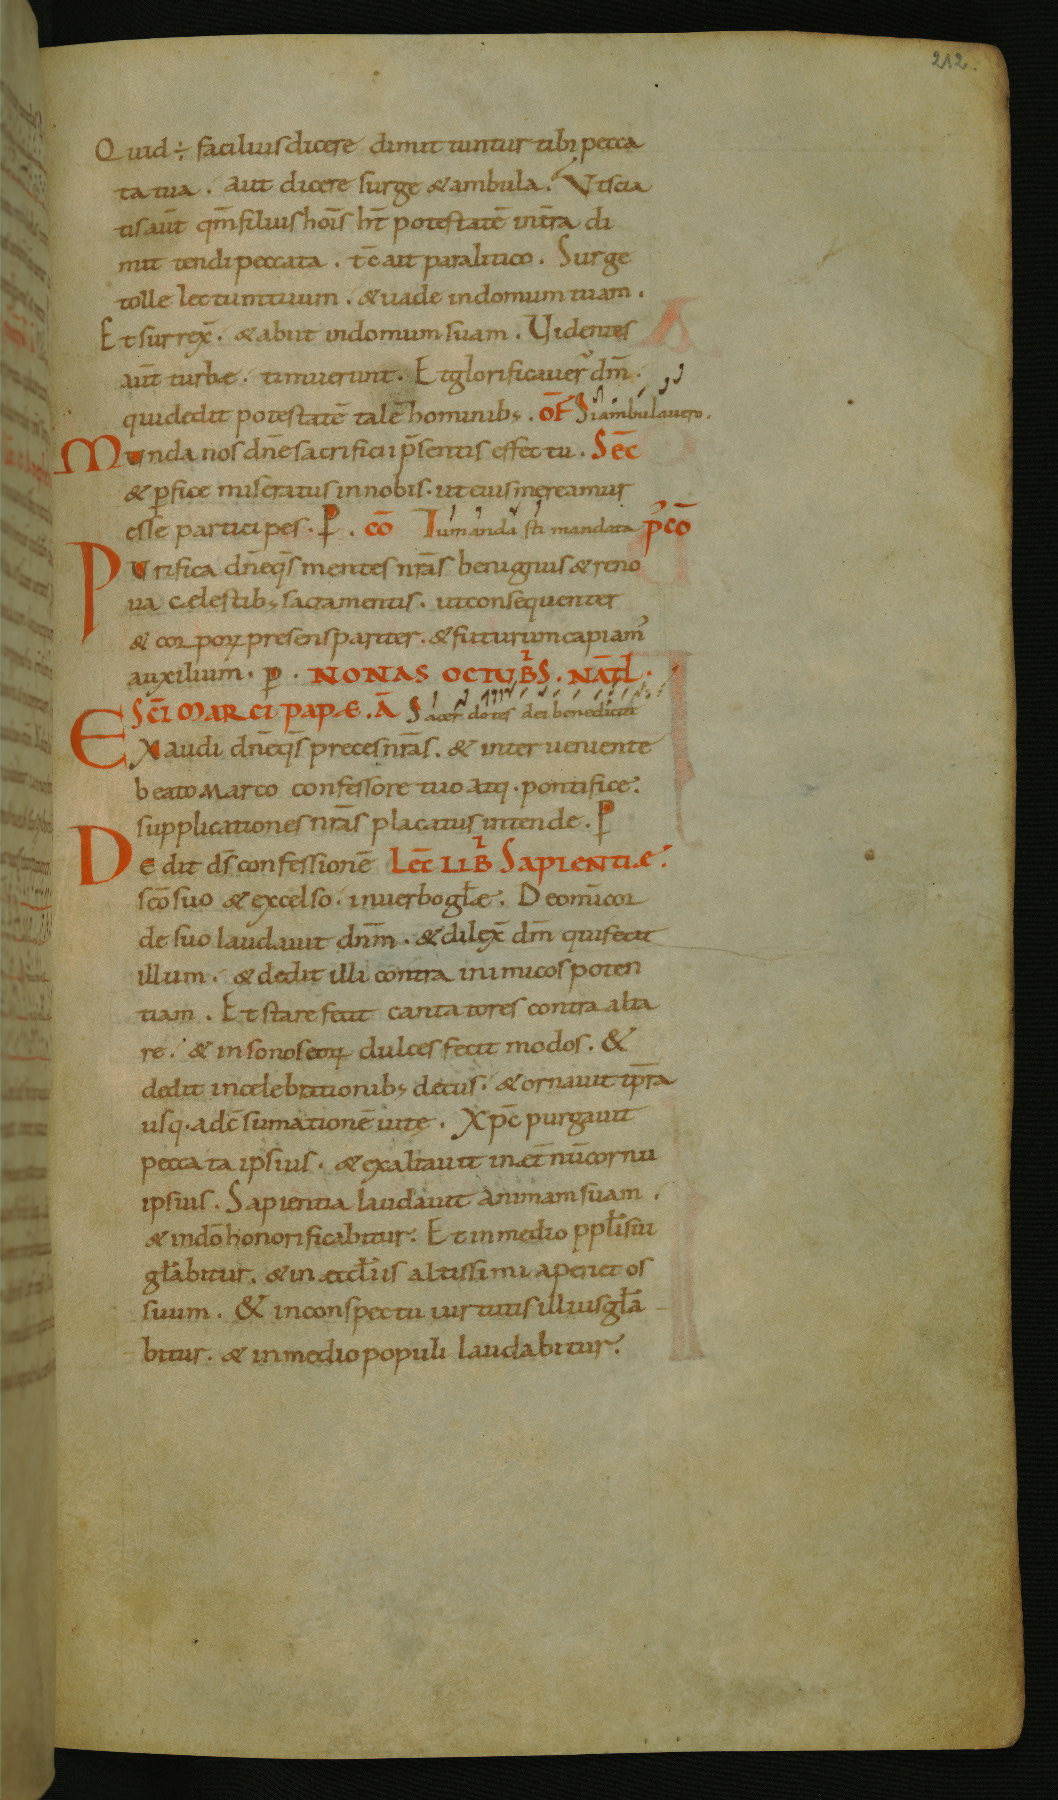 212.
Quid ÷ facilius dicere dimittuntur tibi pecca
ta tua . aut dicere surge & ambula . Ut scia
tis aūt qm̄ filius hoīs ht̄ potestatē in tr̄a di
mittendi peccata . tc̄ ait paralitico . Surge
tolle lectum tuum . & uade in domum tuam .
Et surrex̄ . & abiit in domum suam . Uidentes
aūt turbæ . timuerunt . Et glorificauer̄ dm̄ .
qui dedit potestatē talē hominib; . OF̄ Si ambulauero .
Munda nos dn̄e sacrificii p̄sentis effectu . SEC̄
& ꝑfice miseratus in nobis . ut eius mereamur
esse participes . P . CŌ Iucunda sti mandata P̄CŌ
Purifica dn̄e qs̄ mentes nr̄as benignus & reno
ua cælestib; sacramentis . ut consequenter
& corporꝝ presens pariter . & futurum capiam'
auxilium . P . NONAS OCTUBRIS . NATL̄ .
SCĪ MARCI PAPAE . Ā Sacerdotes dei benedicite
Exaudi dn̄e qs̄ preces nr̄as . & interueniente
beato Marco confessore tuo atq . pontifice .
supplicationes nr̄as placatus intende . P
Dedit ds̄ confessionē LEC̄ LIBRI SAPIENTIÆ .
scō suo & excelso . in uerbo gl̄æ . De omī cor
de suo laudauit dnm̄ . & dilex̄ dm̄ qui fecit
illum . & dedit illi contra inimicos poten
tiam . Et stare fecit cantatores contra alta
re . & in sono eoꝝ dulces fecit modos . &
dedit in celebrationib; decus . & ornauit tp̄ra
usq . ad c̄sumationē uite . Xpc̄ purgauit
peccata ipsius . & exaltauit in et̄nū cornu
ipsius . Sapientia laudauit animam suam .
& in dō honorificabitur . Et in medio ppl̄i sui
gl̄abitur . & in æccl̄iis altissimi aperiet os
suum . & in conspectu uirtutis illius gl̄a
bitur . & in medio populi laudabitur .